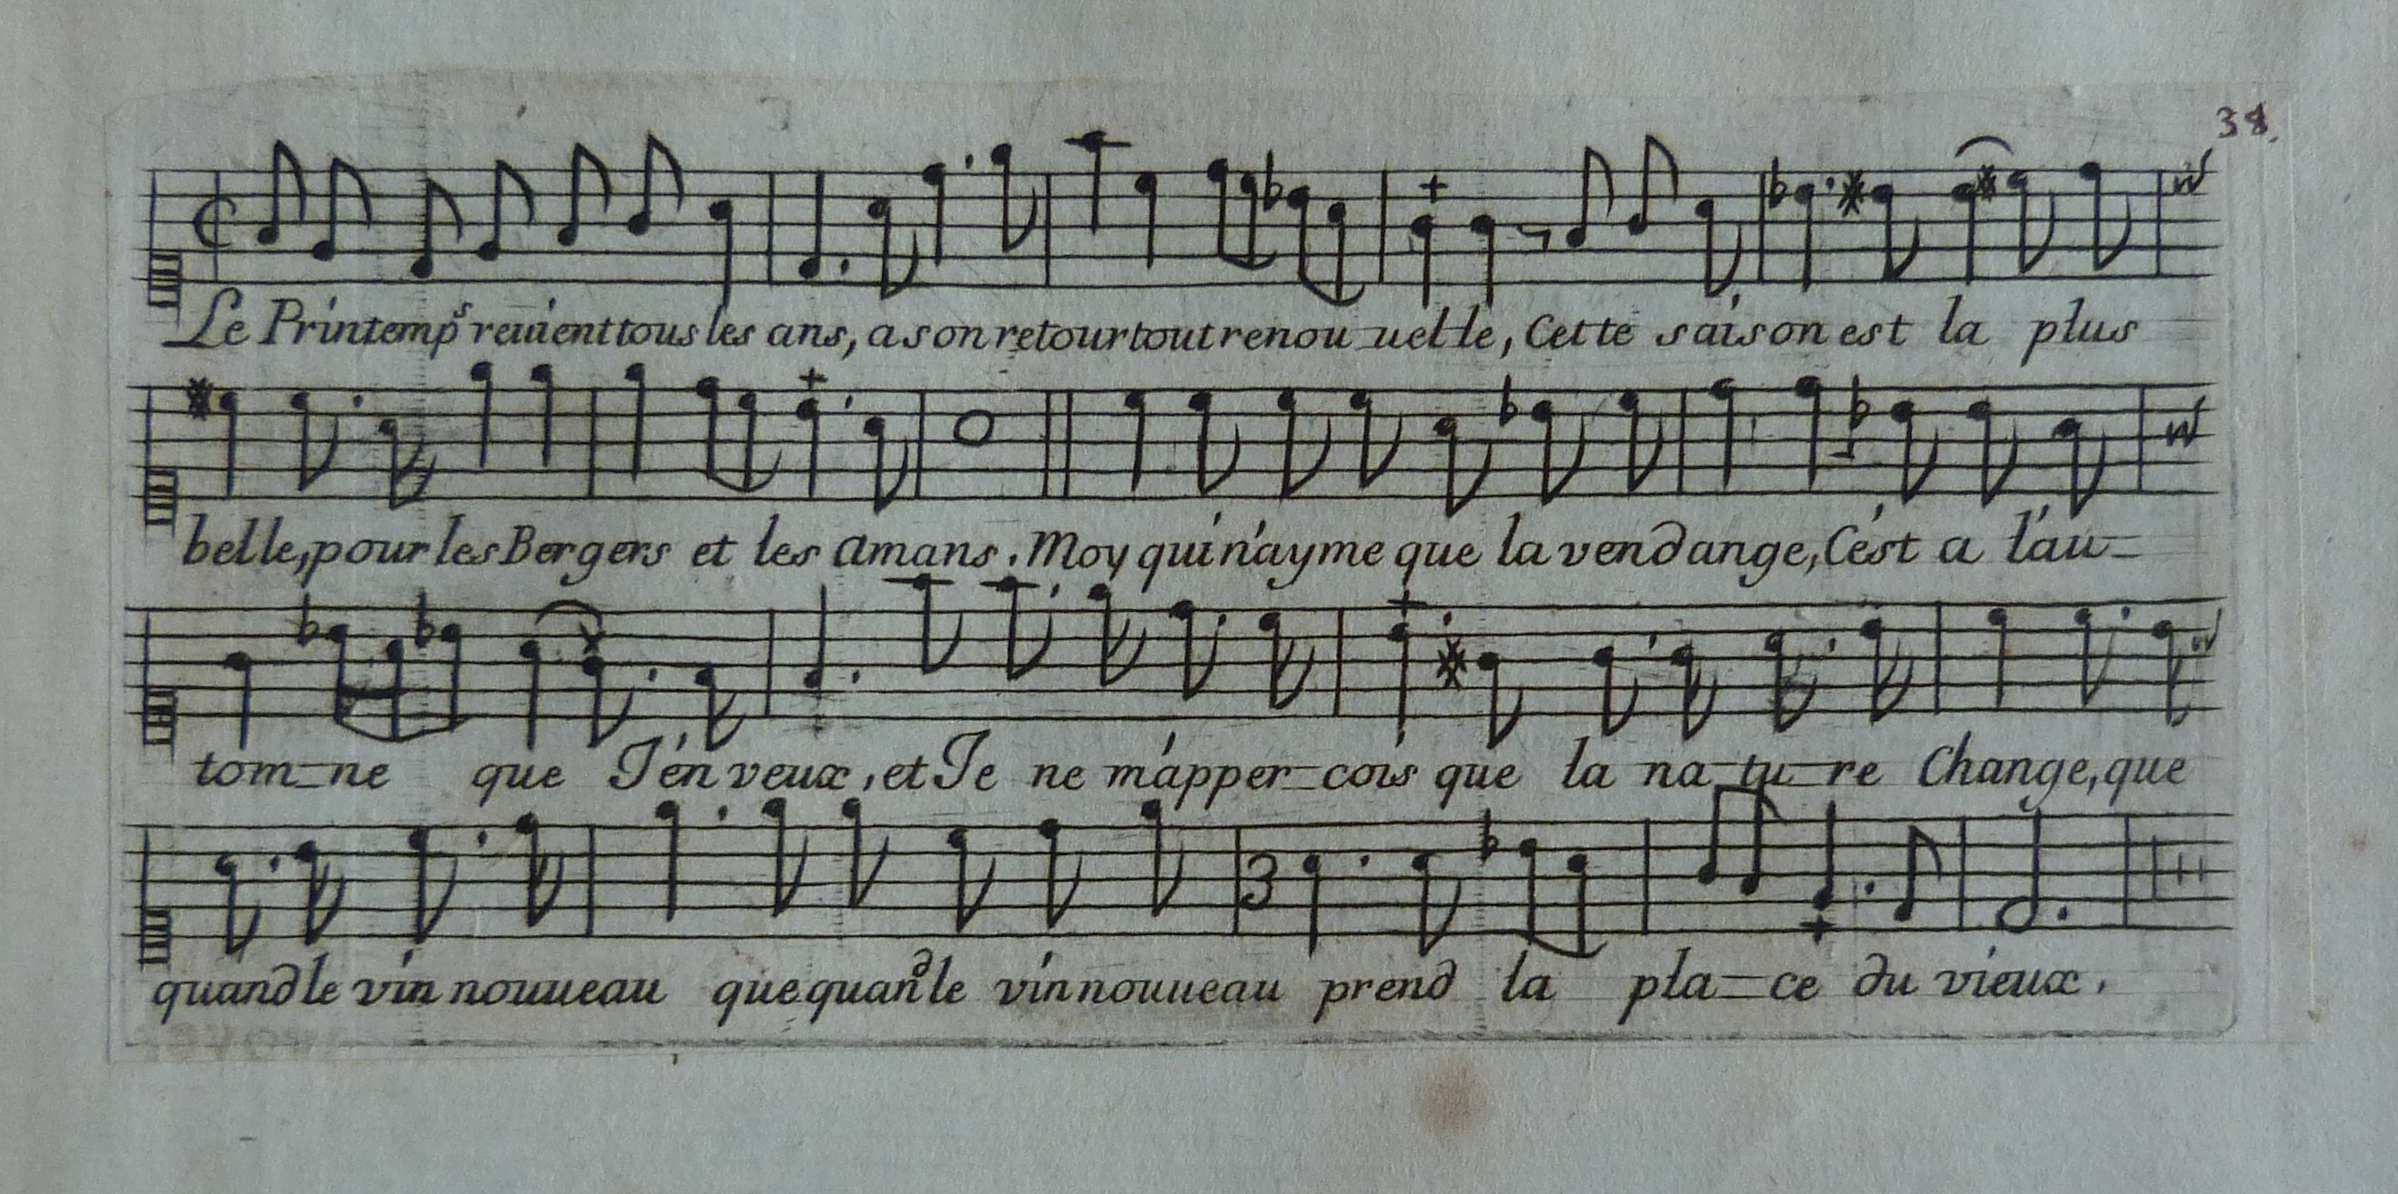 38.
Le Printemps reuient tous les ans, a son retour tout renou-uelle, Cette saison est la plus
belle, pour les Bergers et les amans. Moy qui n'ayme que la vendange, C'est a l'au-
tom-ne que J'en veux, et Je ne m'apper-cois que la na-tu-re Change, que
quand le vin nouueau que quand le vin nouueau prend la pla-ce du vieux.